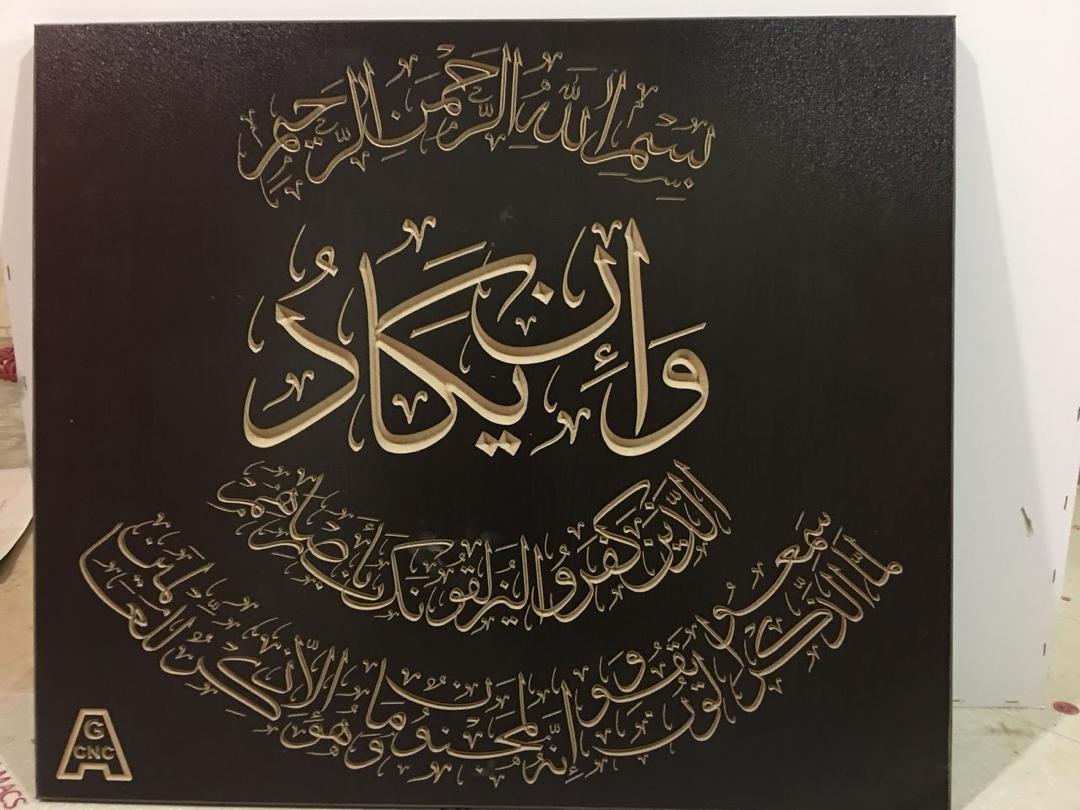 بِسْمِ اللَّهِ الرَّحْمَنِ الرَّحِيمِ
وَإِن يَكَادُ
الَّذِينَ كَفَرُوا لَيُزْلِقُونَكَ بِأَبْصَارِهِمْ
لَمَّا سَمِعُوا الذِّكْرَ وَيَقُولُونَ إِنَّهُ لَمَجْنُونٌ وَمَا هُوَ إِلَّا ذِكْرٌ لِلْعَالَمِينَ
G
CNC
A
MACS